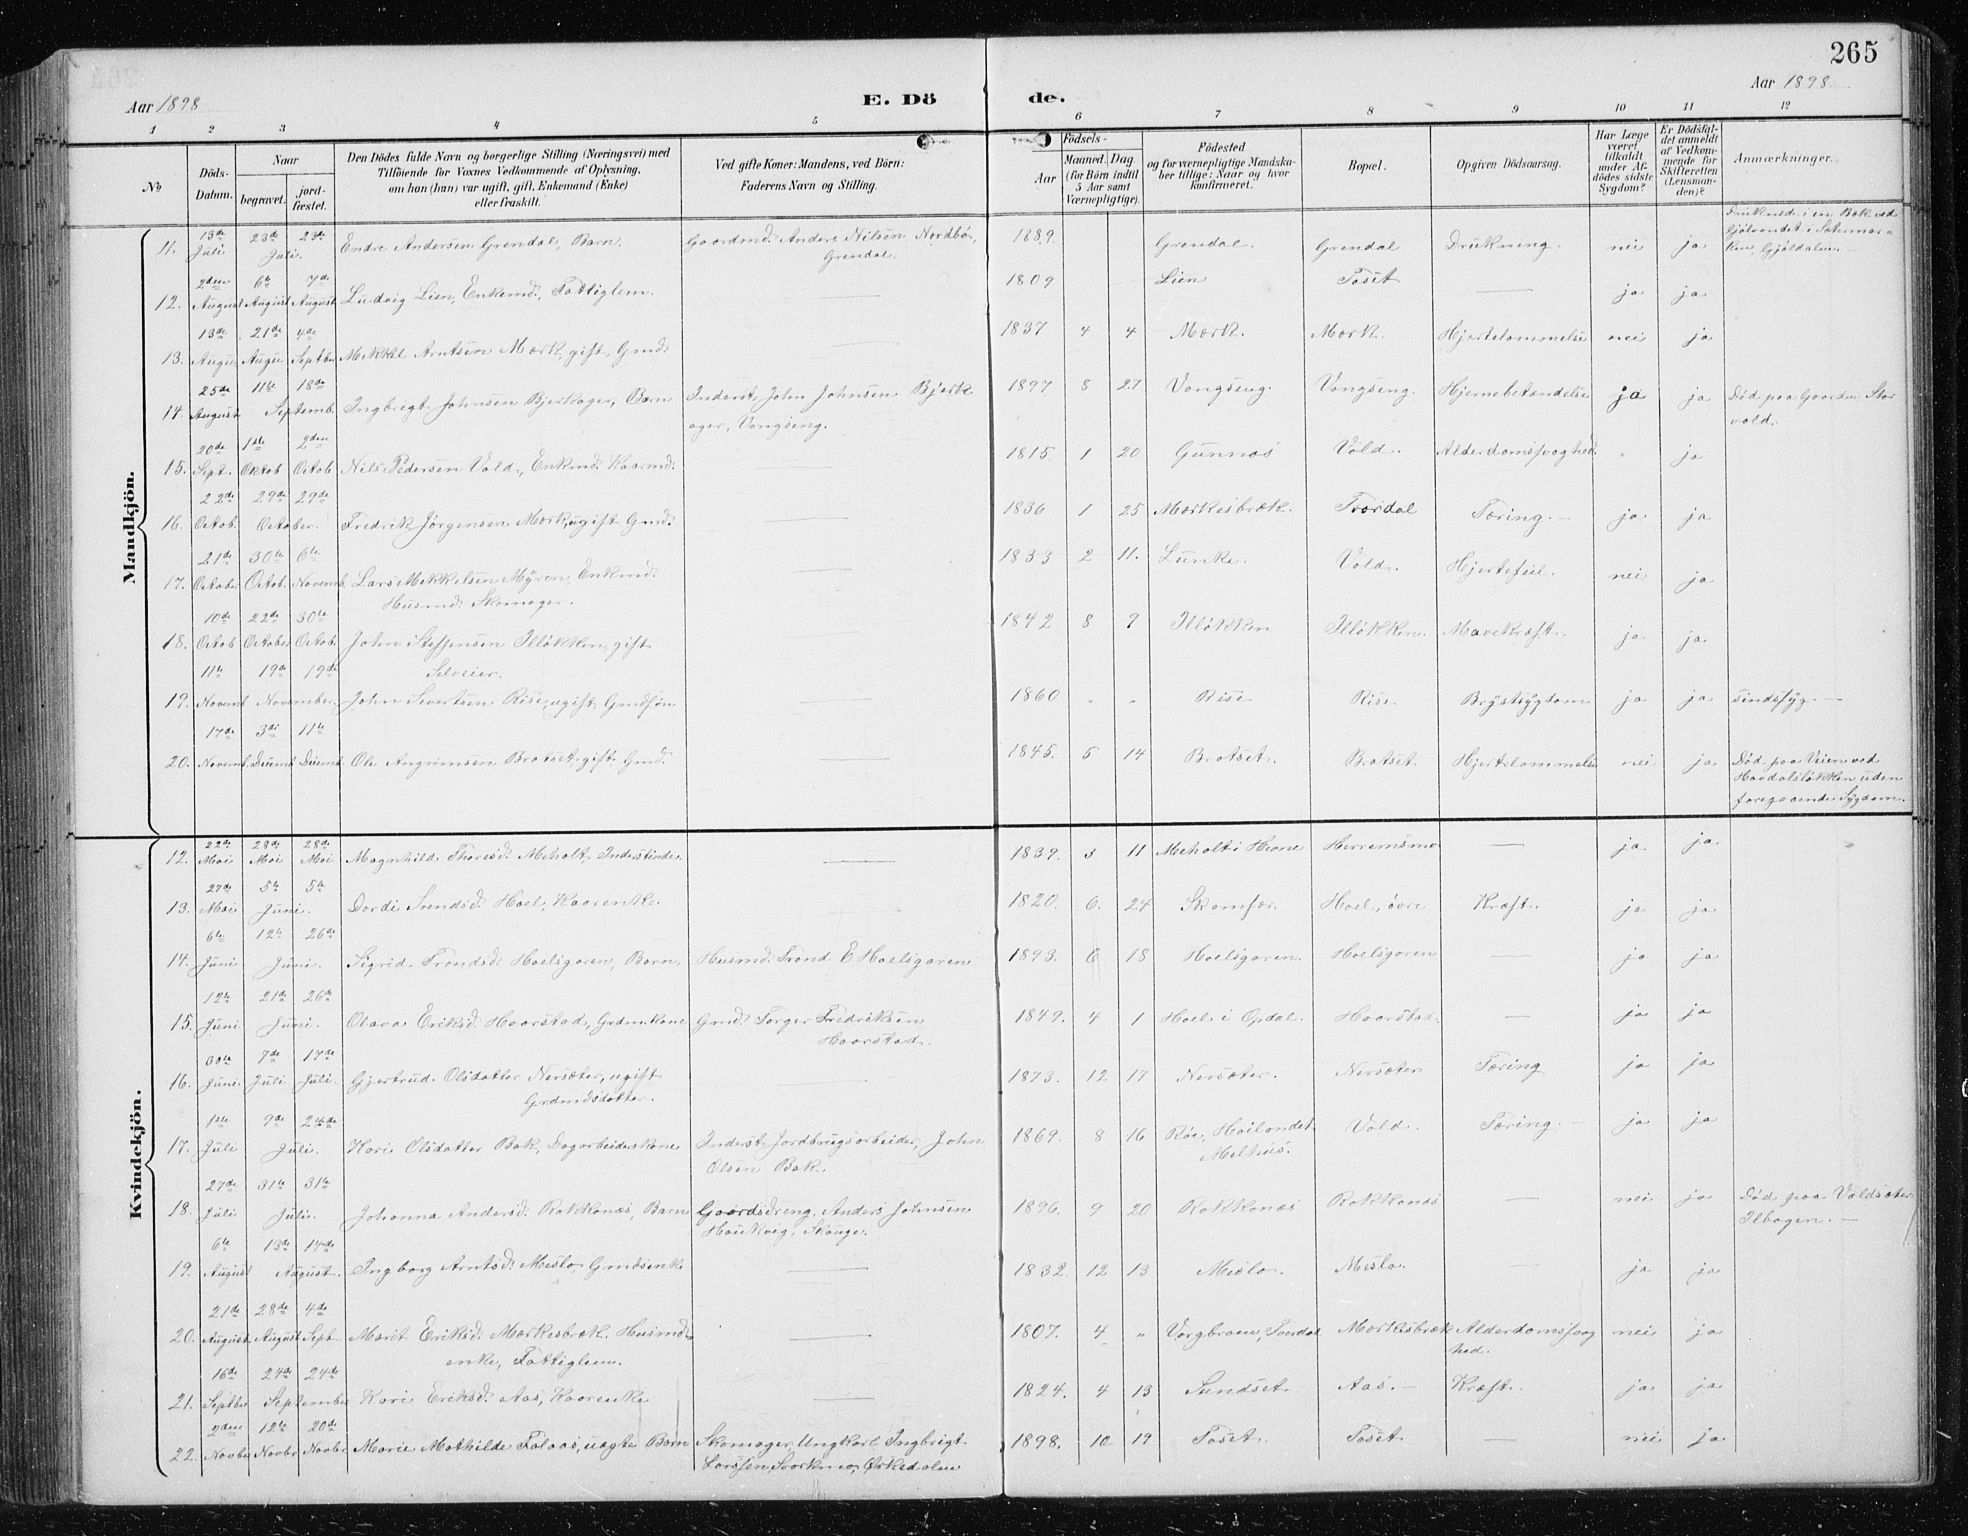 265
Aar 1898
E. Dö de.
Aar 1898
1 2 3 4 5 6 7 8 9 10 11 12
No
Döds-Datum.
Naar
begravet.
jord-fæstet.
Den Dödes fulde Navn og borgerlige Stilling (Næringsvei) med
Tilföiende for Voxnes Vedkommende af Oplysning,
om han (hun) var ugift, gift, Enkemand (Enke)
eller fraskilt.
Ved gifte Koner: Mandens, ved Börn:
Faderens Navn og Stilling.
Födsels-
Aar
Maaned. Dag.
(for Börn indtil
5 Aar samt
Værnepligtige).
Födested
og for værnepligtige Mandska-
ber tillige: Naar og hvor
konfirmeret.
Bopæl.
Opgiven Dödsaarsag.
Har Læge
været
tilkaldt
under Af-
dödes sidste
Sygdom?
Er Dödsfal-
det anmeldt
af Vedkom-
mende for
Skifteretten
(Lensman-
den)?
Anmærkninger.
Mandkjön.
11. 13de Juli 23de 23de Juli. Endre Andersen Grendal, Barn. Gaardmd. Anders Nilsen Nordbø, Grendal. 1889. Grendal. Grendal Drukning. nei ja Druknede i en Bæk ved
12. 2den August 6te August 7de August Ludvig Lien, Enkemd., Fattiglem. — 1809 Lien Toset — ja ja
13. 13de Augu 21de Augu 4de Septbr Mekkel Arntsen Mærk, gift, Gmd. — 1837 4 4 Mærk. Mærk. Hjertelammelse nei ja
14. 25de August 11te 18de Septemb. Ingbregt Johnsen Bjerkager, Barn Inderst, John Johnsen Bjerkager, Vongseng. 1897 8 27 Vongseng. Vongseng. Hjernebetændelse ja ja Död paa Gaarden Storvold.
15. 20de Sept. 1ste Oktob 2den Octob Nils Pedersen Vold, Enkmd. Kaarmd. — 1815. 1 20 Gunnæs Vold. Alderdomssvaghed. " ja
16. 22de Octob. 29de 29de October. Fredrik Jörgensen Mærk, ugift Gmd. — 1836 1 25 Mærkesbræk. Trördal Tæring. — ja ja
17. 21de October 30te Octob. 6te Novemb. Lars Mekkelsen Myren, Enkmd. Husmd. Skomager. — 1833 2 11. Lunke. Vold. Hjertefeil. nei ja
18. 10de Octob 22de October 30te Octob. John Steffensen Illökken, gift Selveier. — 1842 8 9 Illökken Illökken. Mavekræft. ja ja
19. 11te Novemb 19de 19de November. John Sivertsen Rise, ugift, Gmdsön — 1860 " " Rise Rise. Brystsygdom ja ja Sindssyg. —
20. 17de Novemb. 3die Decemb 11te Decemb. Ole Angrimsen Bratset, gift Gmd. — 1845. 5 14 Bratset. Bratset. Hjertelammelse nei ja Död paa Veien ved Haadalslökken uden foregaaende Sygdom.
Kvindekjön.
12. 22de Mai 28de Mai 28de Mai Magnhild Thoresd. Meholt, Inderstinde. — 1839. 3 11 Meholt i Herremsmo — ja ja
13. 27de Mai 5te 5te Juni. Dordi Svendsd. Hoel, Kaarenke. 1820. 6. 24 Skamfær. Hoel, övre Kræft. ja ja
14. 6te Juni 12te 26de Juni. Sigrid Trondsd. Hoelsgaren, Barn. Husmd. Trond E Hoelsgaren 1893. 6 18 Hoelsgaren. Hoelsgaren — ja ja
15. 12te Juni 21de 26de Juni. Olava Eriksd. Haarstad, Grdmkone Gmd. Torger Fredriksen Haarstad. 1849. 4 1 Hoel i Opdal. Haarstad. — ja ja
16. 30te Juni. 7de Juli 17de Juli. Gjertrud Olsdatter Nersæter, ugift Grdmdsdatter. — 1873. 12 17 Nersæter. Nersæter Tæring ja ja
17. 1ste Juli 9de 24de Juli. Kari Olsdatter Bak, Dagarbeiderskone Inderst, Jordbrugsarbeider, John Olsen Bak. 1869. 8 16 Höilandet Melhus. Vold. Tæring. — ja ja
18. 27de Juli 31te 31te Juli. Johanna Andersd. Rokkones, Barn Gaardsdreng, Anders Johnsen Haukvig, Skauge. 1896. 9 20 Rokkones Rokkones — nei ja Död paa Voldsæter Ilbogen. —
19. 6te August 13de 14de August. Ingborg Arntsd. Meslo Gmdsenk. — 1832. 12 13 Meslo. Meslo. — ja ja
20. 21de August. 28de August 4de Sept. Marit Eriksd. Mærkesbræk. Husmdenke, Fattiglem. — 1807. 4 " Mærkesbræk Alderdomssvaghed. nei ja
21. 16de Septbr 24de 24de September Kari Eriksd. Aas, Kaarenke — 1824. 4 13 Sundset. Aas. — Kræft. ja ja
22. 2den Novbr 12te Novbr 20de Novbr. Marie Mathilde Folaas, uægte Barn Skomager, Ungkarl Ingbrigt Larssen, Svorkmo, Ørkedalen 1898. 10 19 Toset. Toset — nei ja